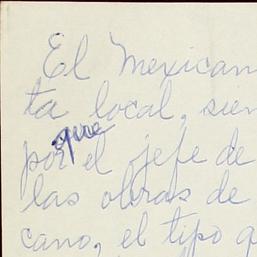 El Mexican
ta local, sien
que
por el jefe de
las obras de
cano, el tipo q